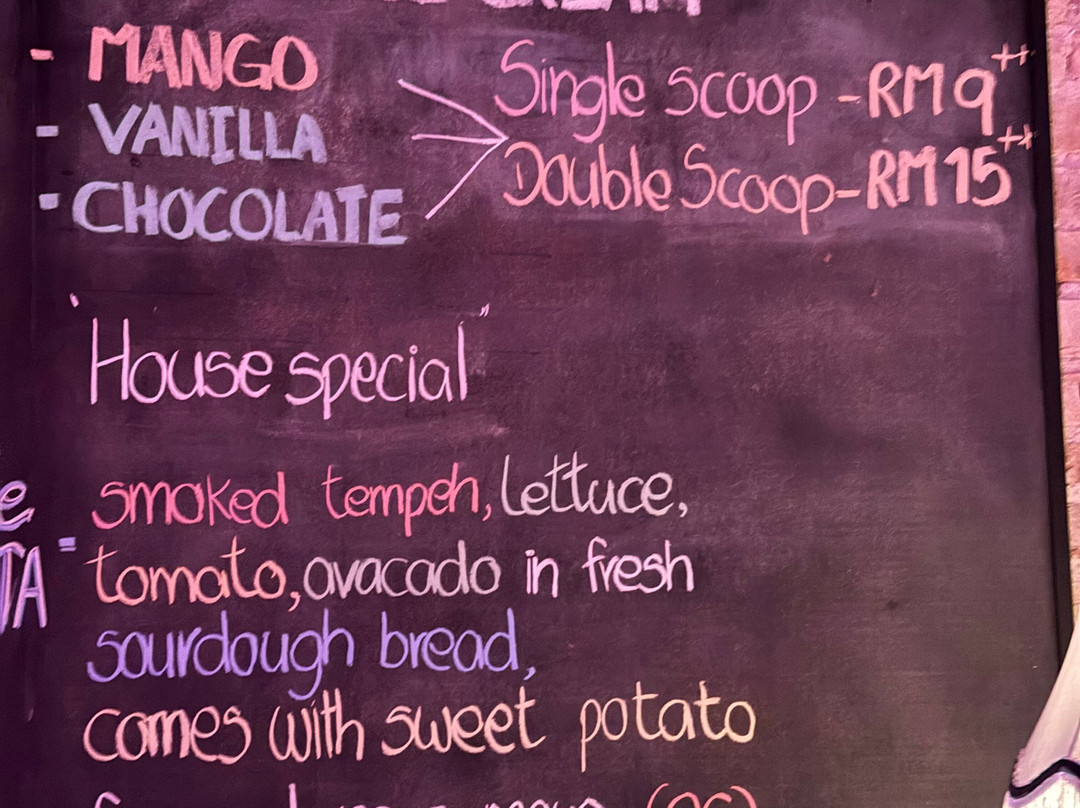 CREAM
- MANGO
- VANILLA
- CHOCOLATE
Single scoop - RM9++
Double Scoop - RM15++
"House special"
smoked tempeh, lettuce,
tomato, avacado in fresh
sourdough bread,
comes with sweet potato